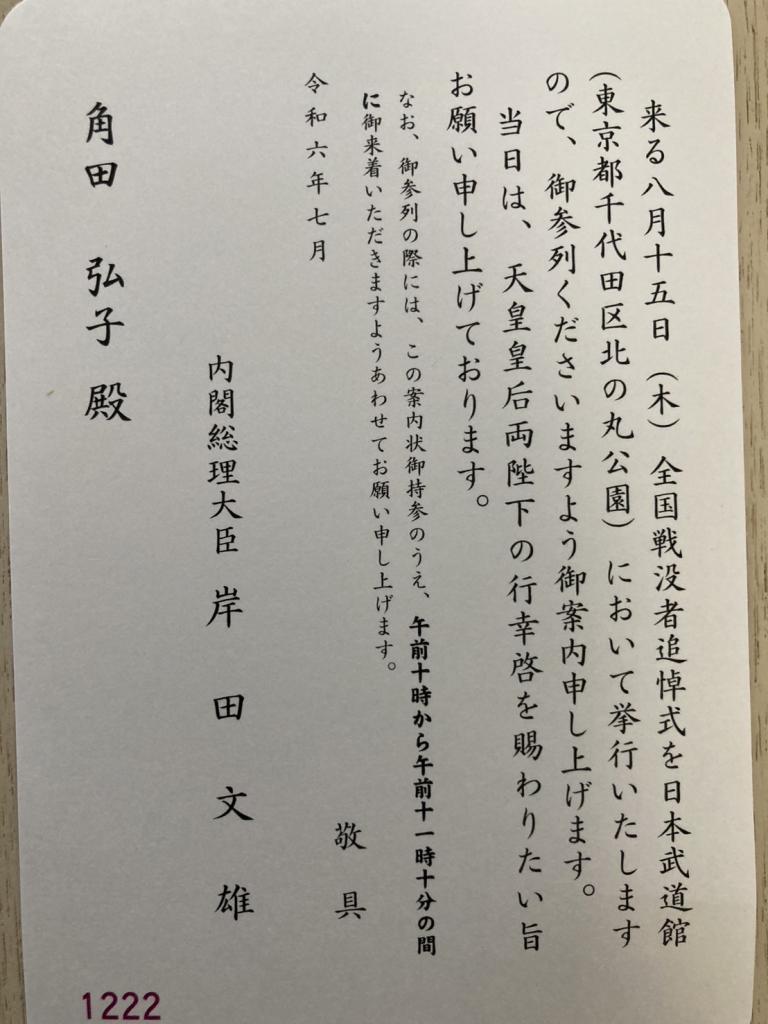 来る八月十五日（木）全国戦没者追悼式を日本武道館
（東京都千代田区北の丸公園）において挙行いたします
ので、御参列くださいますよう御案内申し上げます。
当日は、天皇皇后両陛下の行幸啓を賜わりたい旨
お願い申し上げております。
なお、御参列の際には、この案内状御持参のうえ、午前十時から午前十一時十分の間
に御来着いただきますようあわせてお願い申し上げます。
敬具
令和六年七月
内閣総理大臣 岸田文雄
角田 弘子殿
1222